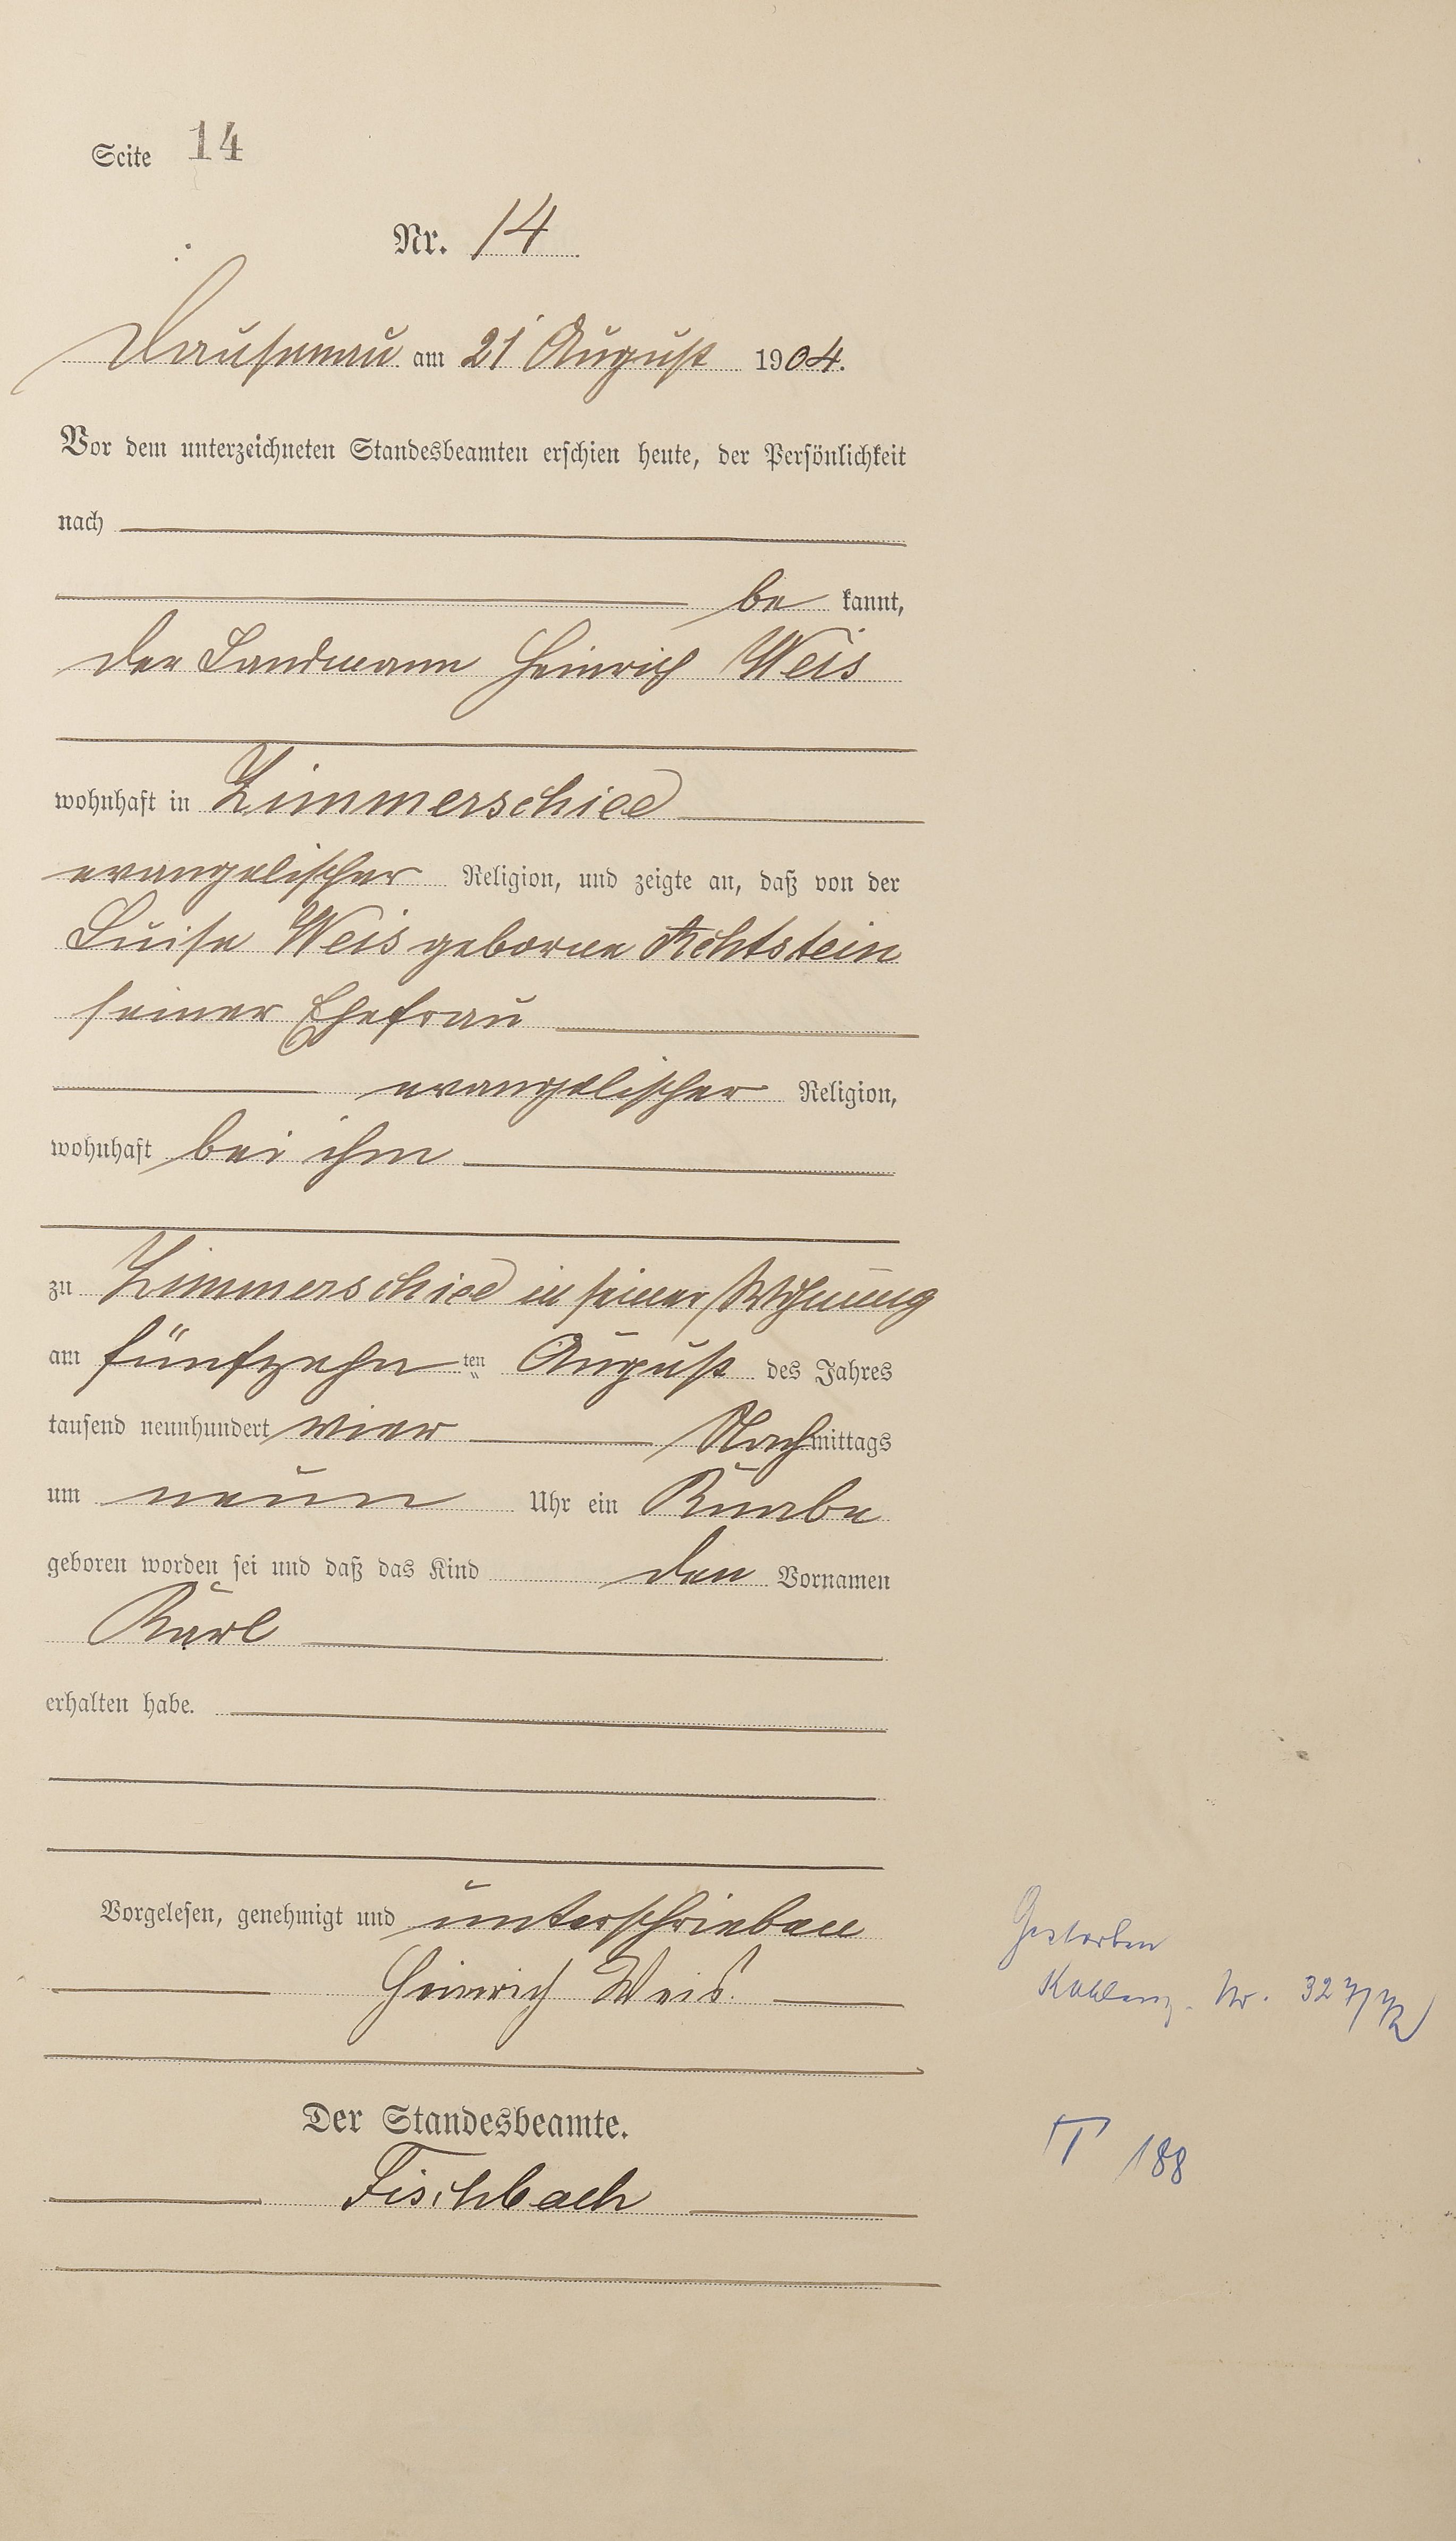 Seite 14
Nr. 14
Dausenau am 21 August 1904.
Vor dem unterzeichneten Standesbeamten erschien heute, der Persönlichkeit
nach
be kannt,
der Landmann Heinrich Weis
wohnhaft in Zimmerschied
evangelischer Religion, und zeigte an, daß von der
Luise Weis geborne Achtstein
seiner Ehefrau
evangelischer Religion,
wohnhaft bei ihm
zu Zimmerschied in seiner Wohnung
am fünfzehn ten August des Jahres
tausend neunhundert vier Nachmittags
um neun Uhr ein Knabe
geboren worden sei und daß das Kind den Vornamen
Karl
erhalten habe.
Vorgelesen, genehmigt und unterschrieben
Heinrich Weis.
Der Standesbeamte.
Fischbach
Gestorben
Koblenz. Nr.
T 188